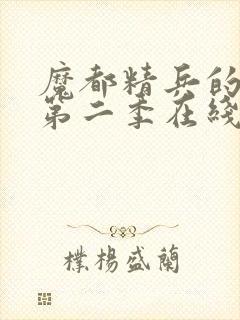 魔都精兵的
第二季在綫
樸楊盛蘭